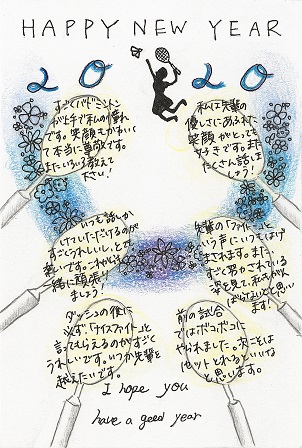 HAPPY NEW YEAR
2020
すごくバドミントン
が上手で私の憧れ
です。笑顔もかわいく
て本当に尊敬です。
またいろいろ教えて
下さい!
私は先輩の
優しさにあふれた
笑顔がとっても
好きです。また
たくさん話しま
しょう!
いつも話しか
けていただけるのが
すごくうれしいし、とみ
幸いです。これからも
一緒に頑張り
ましょう!
先輩の「ファイト―」と
いう声にいつもはげ
まされます。また、
すごく努力されている
姿を見て、私もがん
ばらなければと思い
ます!
ダッシュの後
必ず、「ナイスファイト―」と
言ってもらえるのがすごく
うれしいです。いつか先輩を
越えたいです。
前の試合
ではボコボコに
やられました。次こそは
1セットとれるといいな
と思います。
I hope you
have a good year